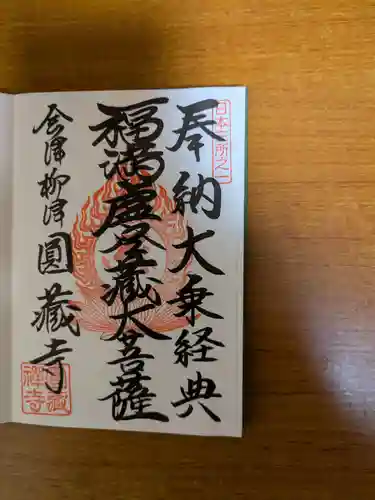 日本三所之一
奉納大乗経典
福満虚空蔵大菩薩
会津柳津
圓藏寺